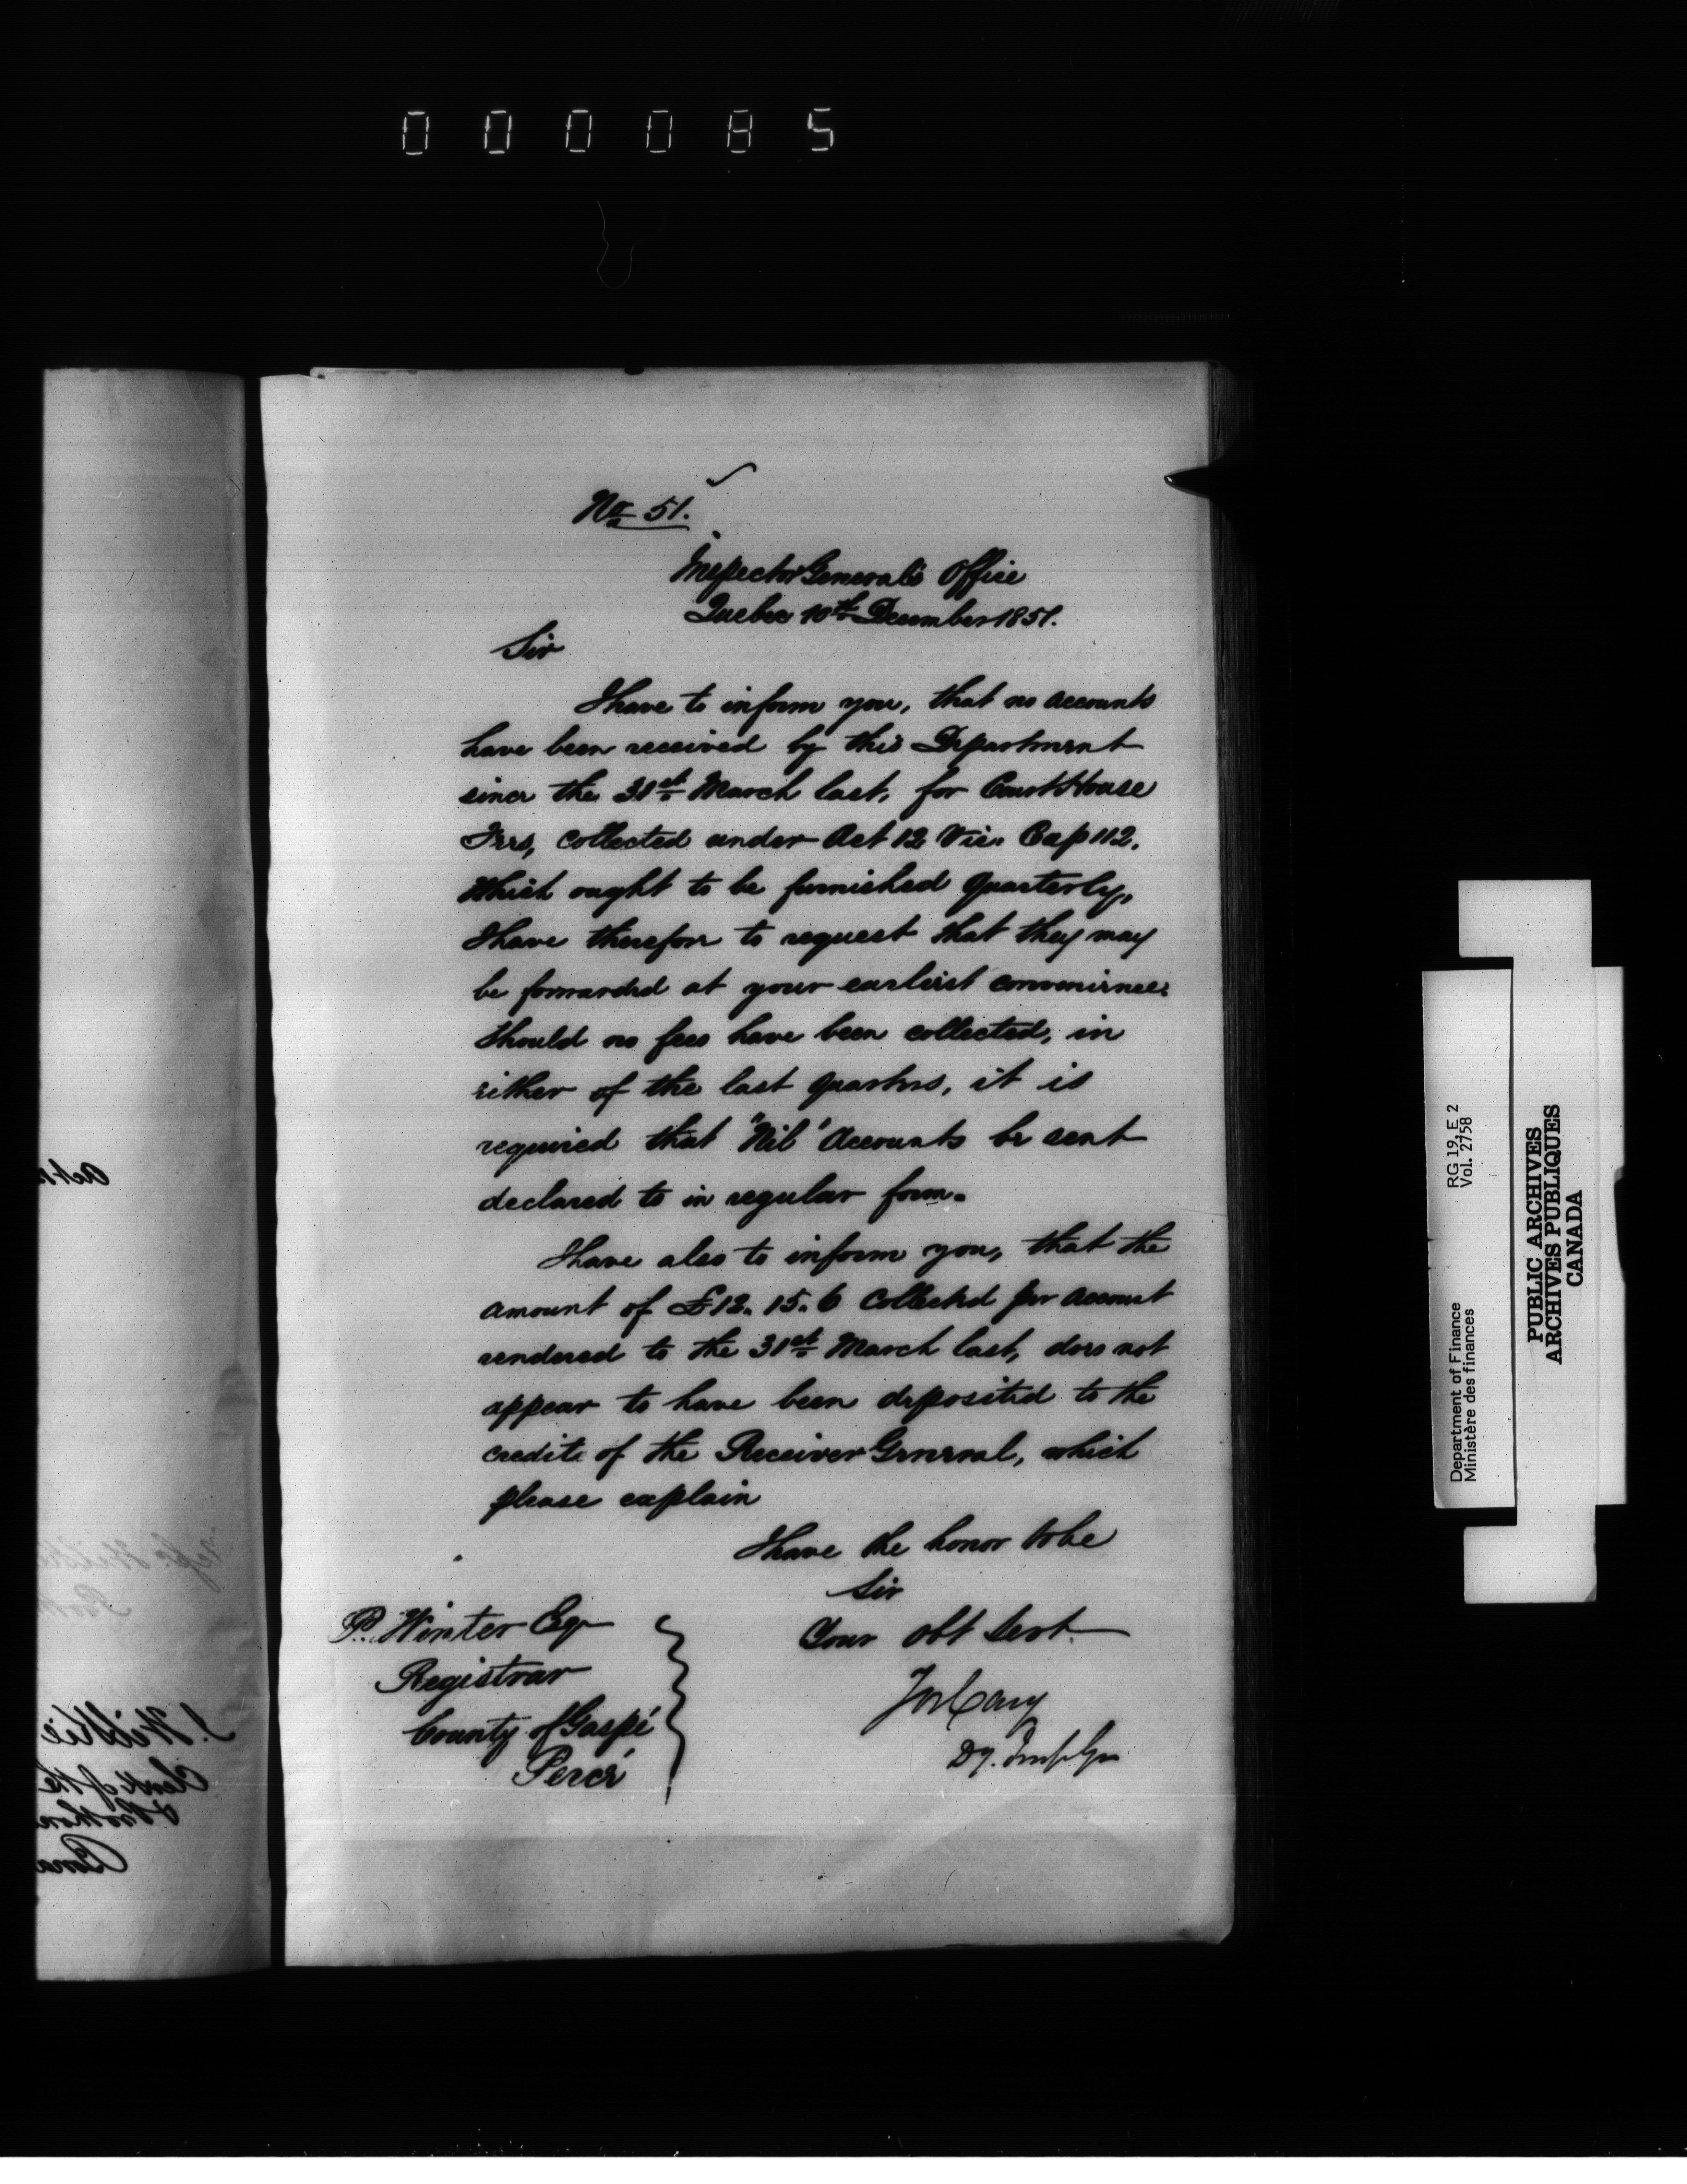 000085
No 51.
Inspector General's Office
Quebec 10th December 1851.
Sir
I have to inform you, that no accounts
have been received by this Department
since the 31st March last, for Court House
Fees, collected under Act 12 Vic. Cap 112.
Which ought to be furnished quarterly,
I have therefore to request that they may
be forwarded at your earliest convenience.
Should no fees have been collected, in
either of the last quarters, it is
required that "Nil" Accounts be sent
declared to in regular form.
I have also to inform you, that the
amount of £12. 15. 6 Collected per account
rendered to the 31st March last, does not
appear to have been deposited to the
credit of the Receiver General, which
please explain
I have the honor to be
Sir
Your obt Servt
Jos Cary
Dy. Insp. Gen
P. Winter Esqr
Registrar
County of Gaspé
Percé
RG 19, E 2
Vol. 2758
Department of Finance
Ministère des finances
PUBLIC ARCHIVES
ARCHIVES PUBLIQUES
CANADA